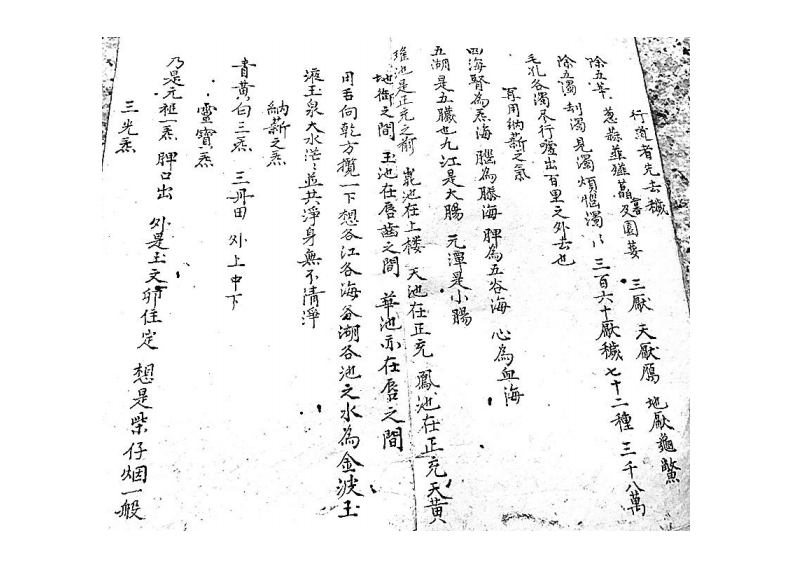 行道者先去穢 三厭 天厭鴈 地厭龜鱉
除五葷 葱蒜韮薤 及園荽 三百六十厭穢七十二種 三千八萬
除五濁 刧濁見濁煩惱濁
毛孔各濁尽行噓出百里之外去也
再用納新之氣
四海腎為炁海 腦為髓海 脾為五谷海 心為血海
五湖是五臟也九江是大腸 元潭是小腸
瑤池是正充之前 崑池在上楼 天池在正充 鳳池在正充天黄
地衙之間 玉池在唇齒之間 華池亦在唇之間
用舌向乾方攬一下想各江各海各湖各池之水為金波玉
液玉泉大水茫〻並共淨身無不清淨
納新之炁
青黄白三炁 三丹田 外上中下
靈寶炁
乃是元祖一炁 脾口出 外是玉文卯住定 想是柴仔烟一般
三光炁